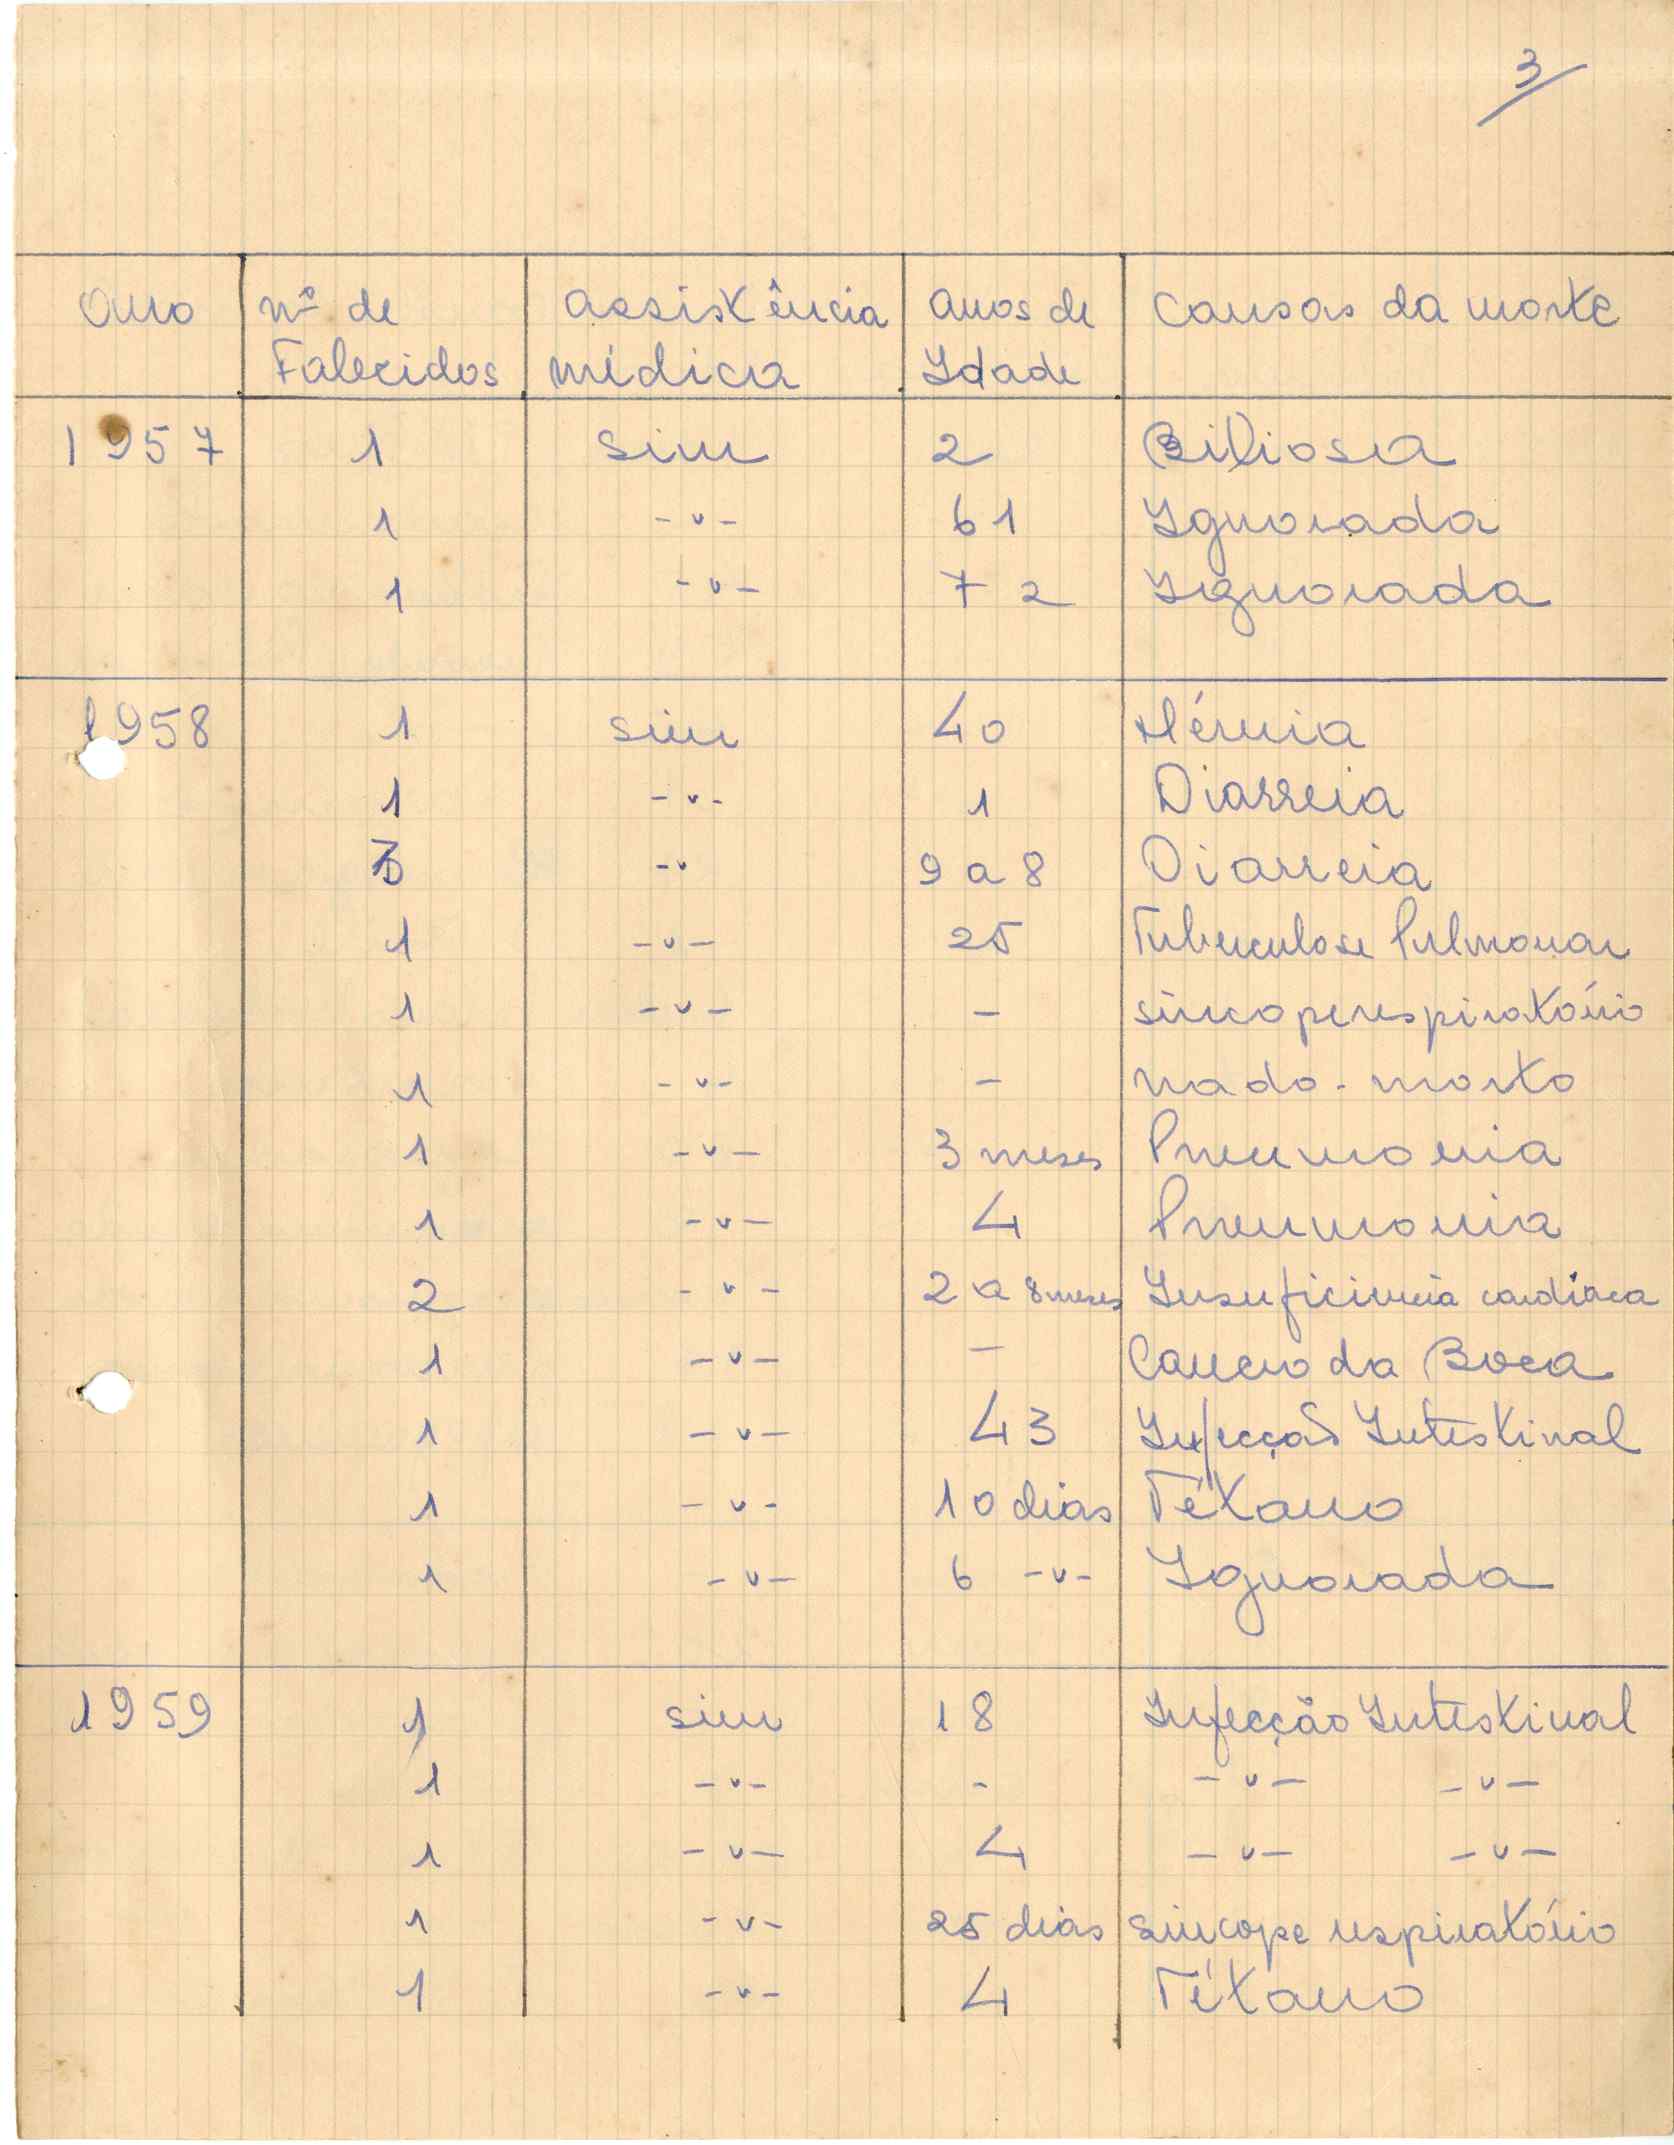 3
Ano nº de Assistência Anos de Causas da morte
Falecidos médica Idade
1957 1 Sim 2 Biliosa
1 -"- 61 Ignorada
1 -"- 72 Ignorada
1958 1 sim 40 Hérnia
1 -"- 1 Diarreia
3 -" 9 a 8 Diarreia
1 -"- 25 Tuberculose Pulmonar
1 -"- - sincope respiratório
1 -"- - nado-morto
1 -"- 3 meses Pneumonia
1 -"- 4 Pneumonia
2 -"- 2 a 8 meses Insuficiencia cardiaca
1 -"- - Cancro da Boca
1 -"- 43 Infecção Intestinal
1 -"- 10 dias Tétano
1 -"- 6 -"- Ignorada
1959 1 sim 18 Infecção Intestinal
1 -"- - -"- -"-
1 -"- 4 -"- -"-
1 -"- 25 dias sincope respiratório
1 -"- 4 Tétano